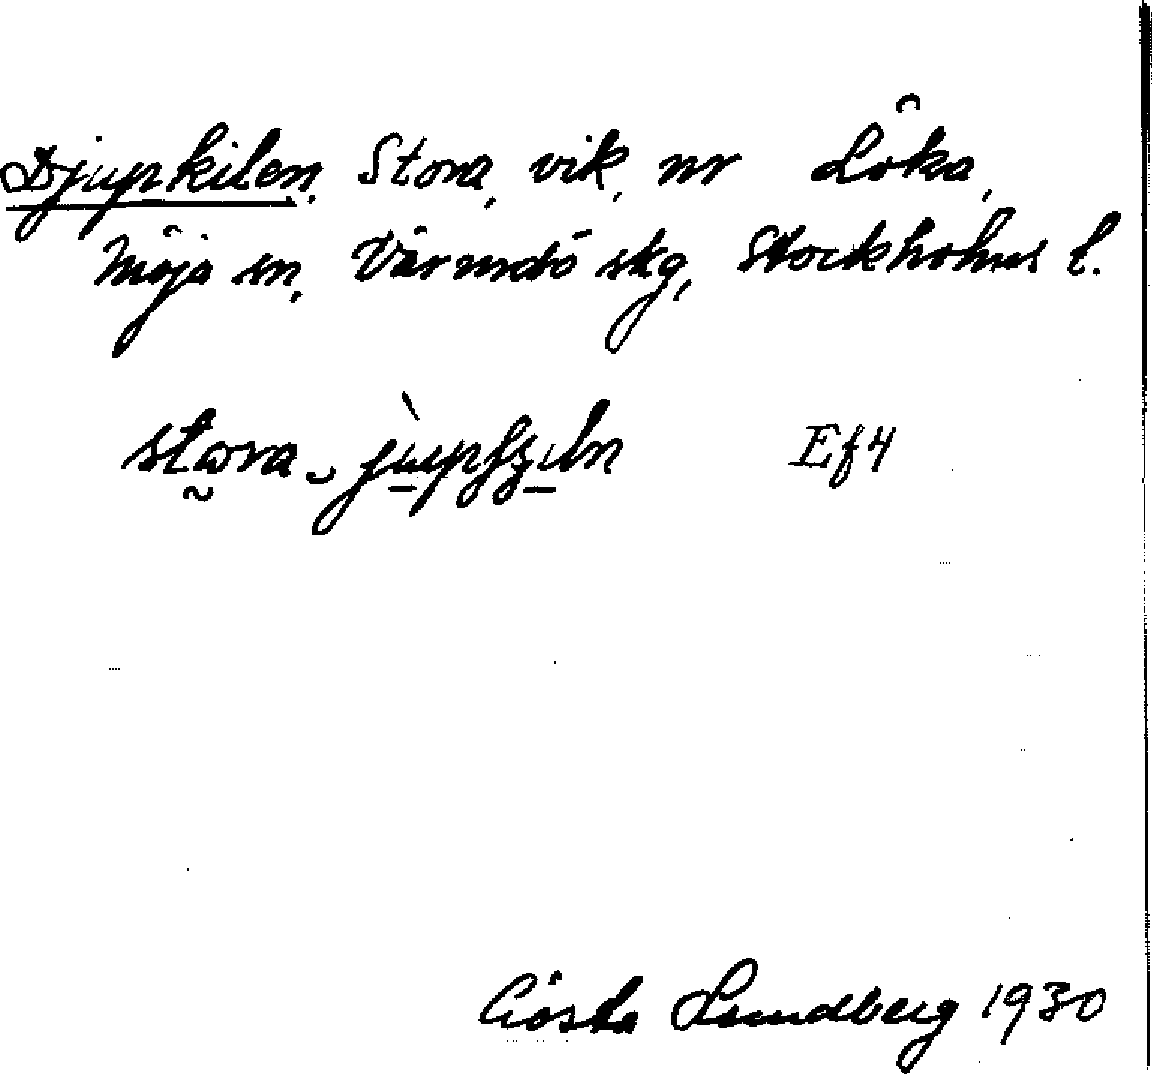 Djupkilen, Stora, vik, nr Löka,
Möja sn, Värmdö skg, Stockholms l.
Ef4
Gösta Lundberg 1930